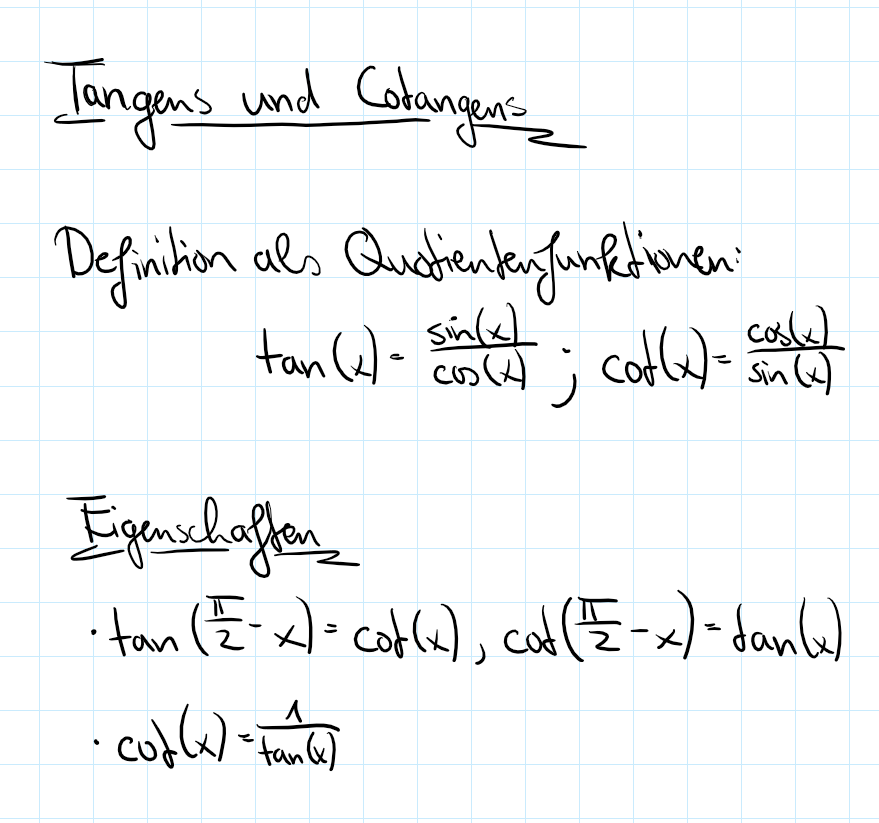 Tangens und Cotangens
Definition als Quotientenfunktionen:
tan(x) = sin(x)/cos(x) ; cot(x) = cos(x)/sin(x)
Eigenschaften
· tan(π/2 - x) = cot(x), cot(π/2 - x) = tan(x)
· cot(x) = 1/tan(x)